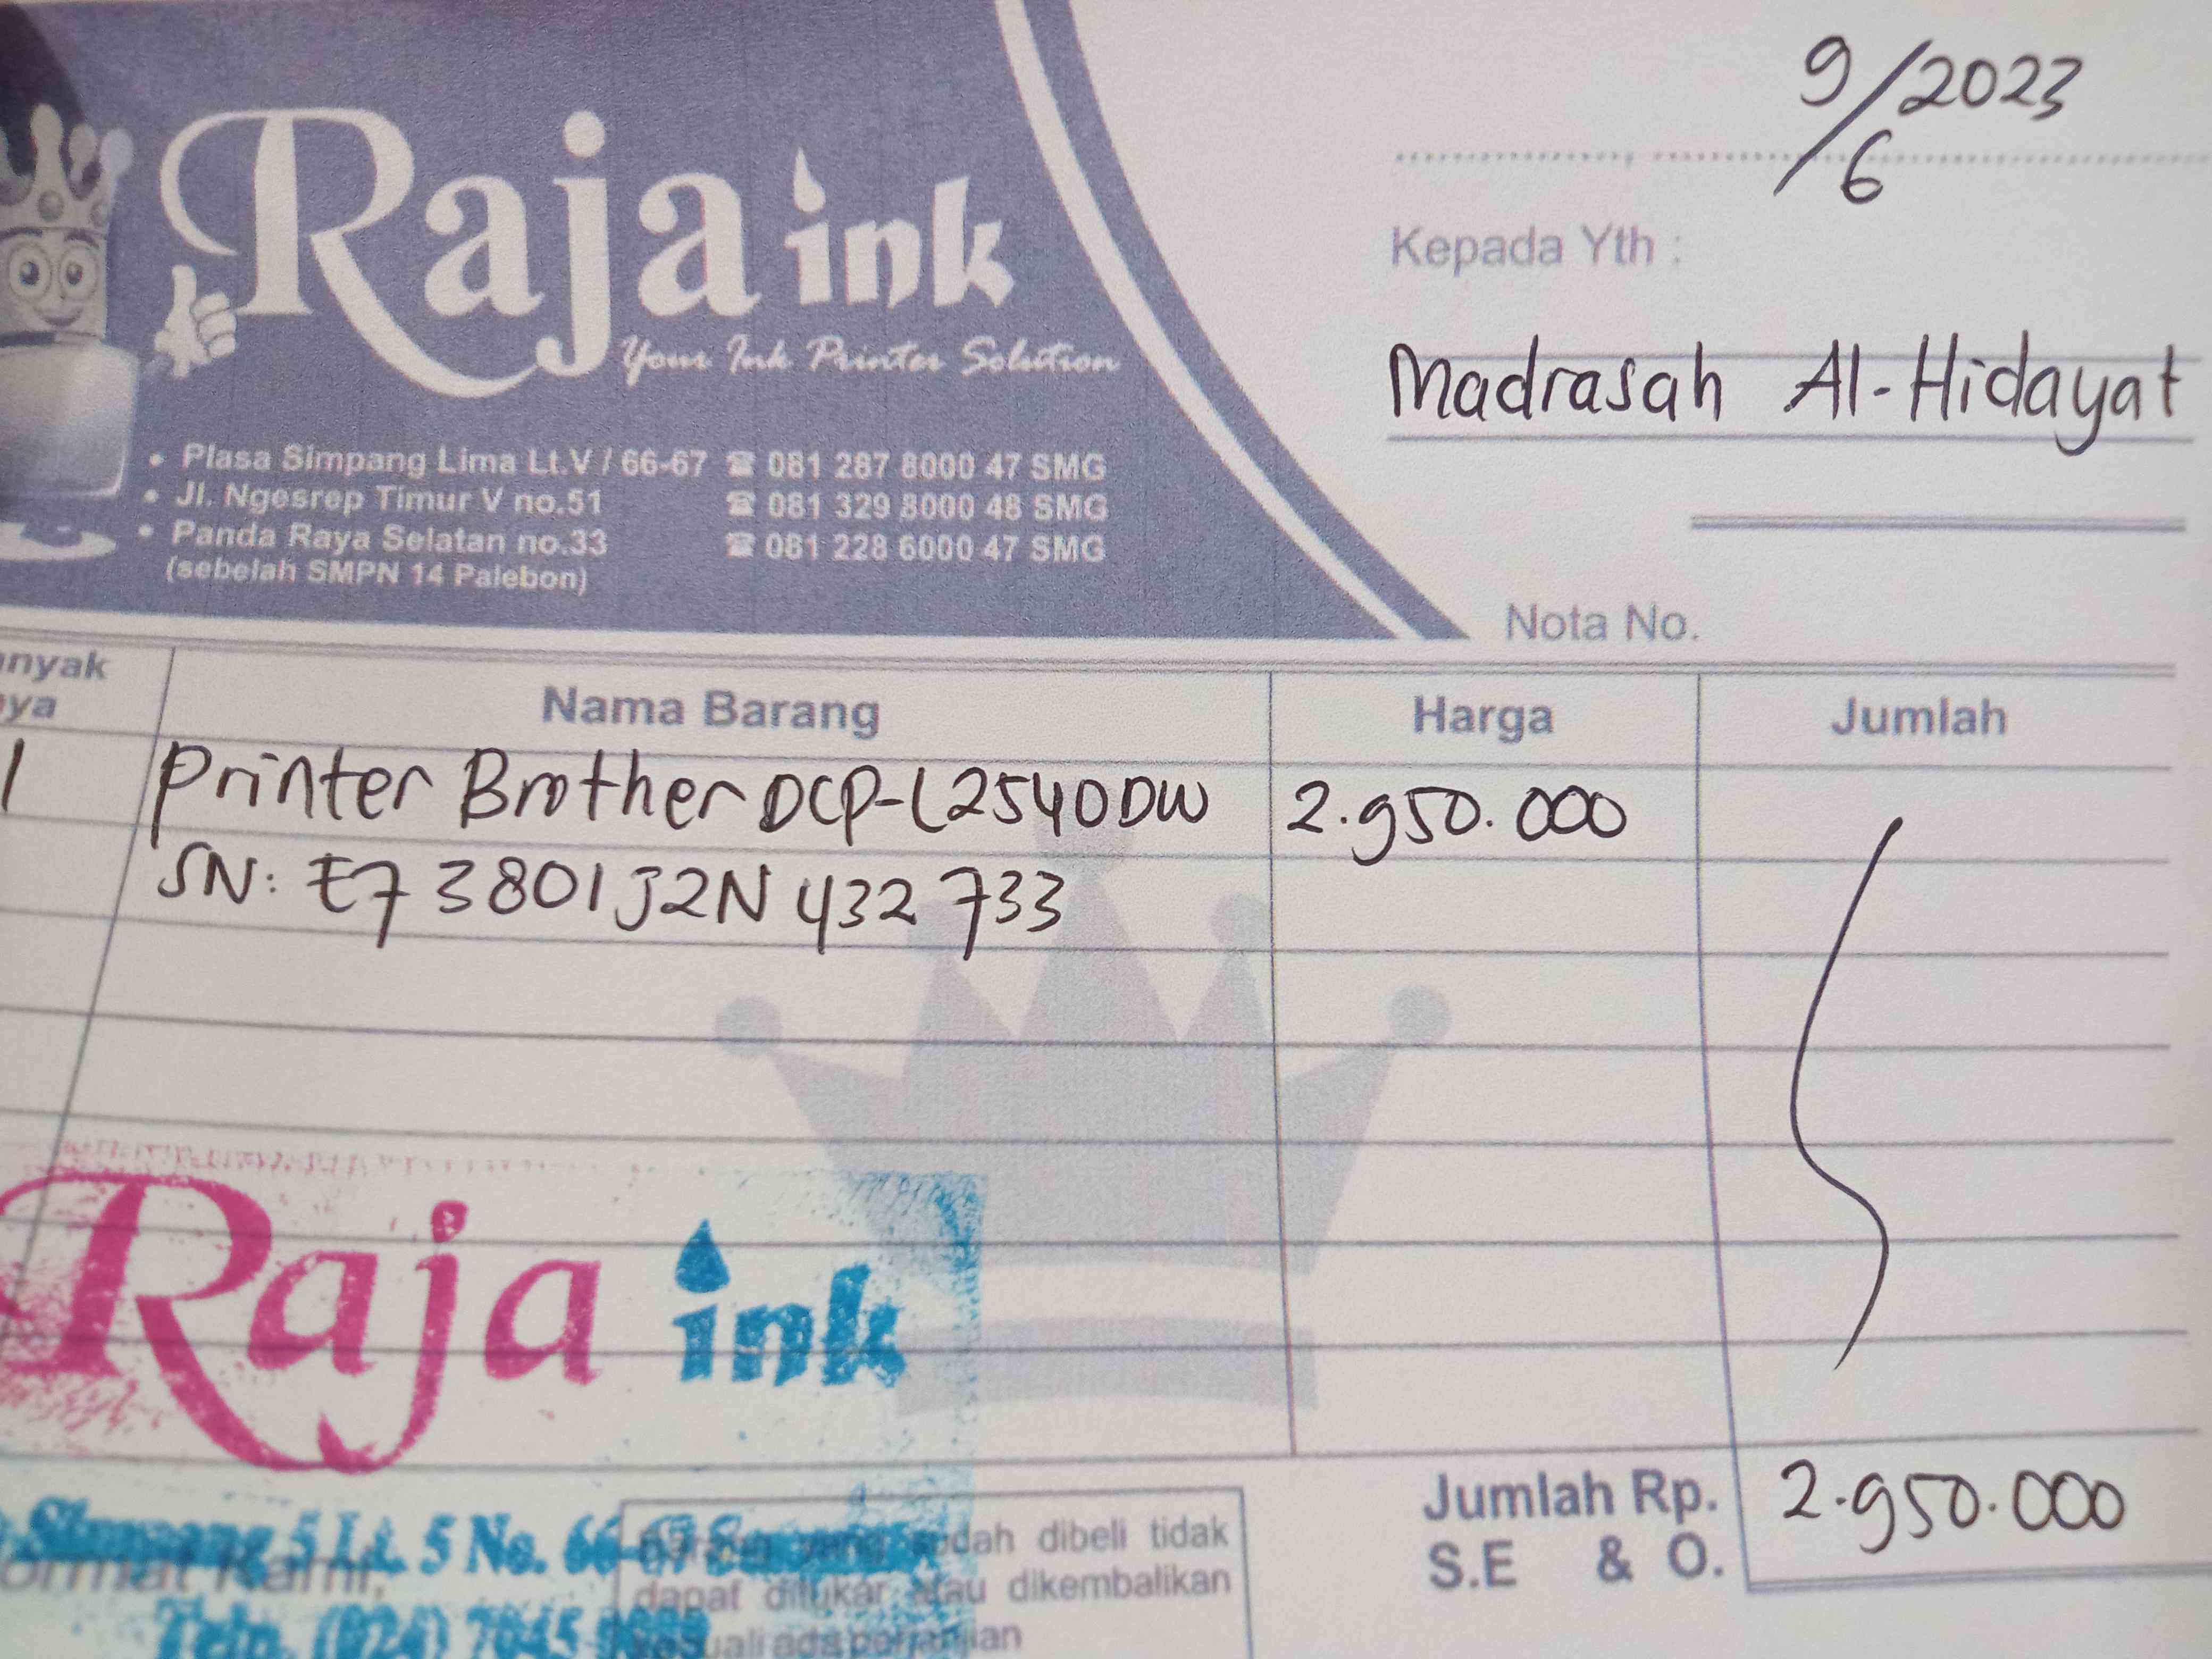 9/6 2023
Raja ink
Your Ink Printer Solution
Kepada Yth :
Madrasah Al-Hidayat
• Plasa Simpang Lima Lt.V / 66-67 ☎ 081 287 8000 47 SMG
• Jl. Ngesrep Timur V no.51 ☎ 081 329 8000 48 SMG
• Panda Raya Selatan no.33 ☎ 081 228 6000 47 SMG
(sebelah SMPN 14 Palebon)
Nota No.
anyak
ya
Nama Barang Harga Jumlah
1 Printer Brother DCP-L2540DW 2.950.000
SN: E73801J2N432733
Raja ink
5 Lt. 5 No. 66-67
ormat Kami,
Telp. (024)
sudah dibeli tidak
dapat ditukar atau dikembalikan
kecuali ada perjanjian
Jumlah Rp. 2.950.000
S.E & O.